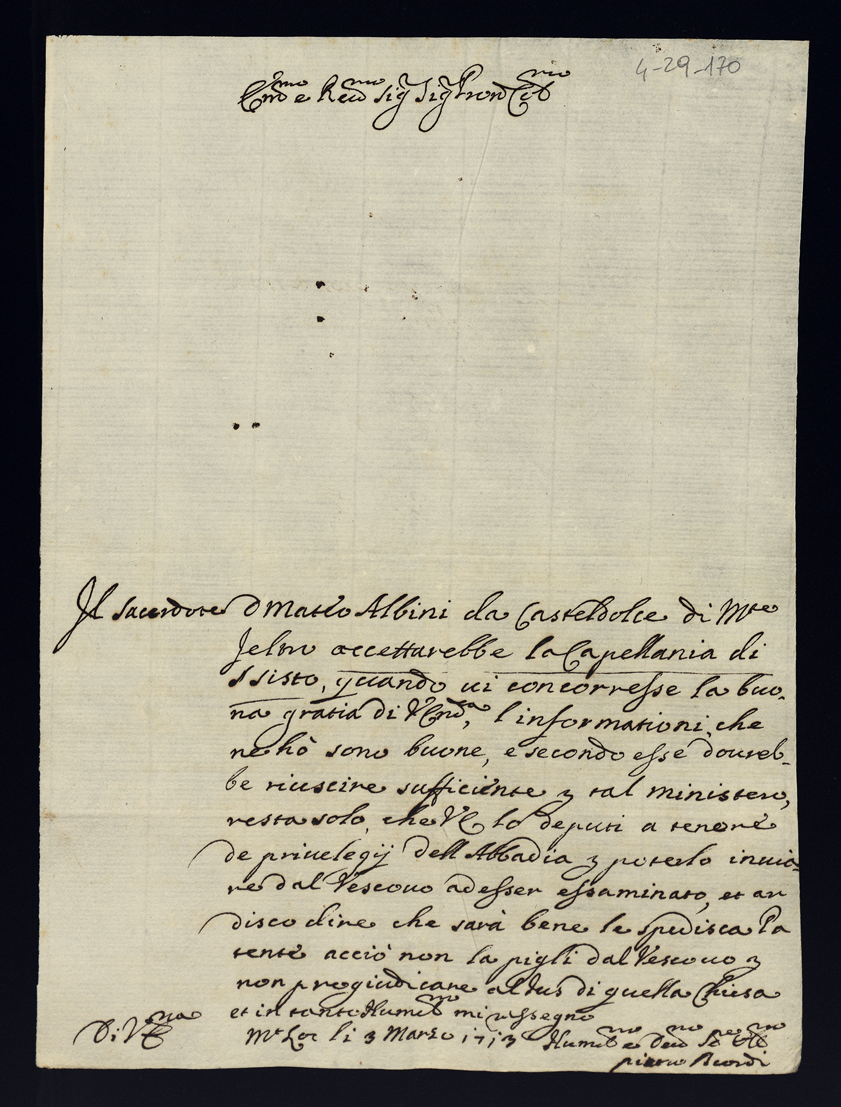 4-29-170
Em̃o e Reũmo Sig Sig Pron Col̃mo
Il sacerdote D Matteo Albini da Casteldolce di Mte
feltro accettarebbe la Capellania di
S Sisto, quando ui concorresse la buo-
na gratia di VEm̃a, l'informationi, che
ne hò sono buone, e secondo esse dourel-
be riuscire sufficiente p tal ministero,
resta solo, che VE lo deputi a tenore
de priuelegij dell Abbadia p poterlo inuia-
re dal Vescouo ad esser essaminato, et ar
disco dire che sarà bene le spedisca Pa
tente acciò non la pigli dal Vescouo p
non pregiudicare al Jus di quella Chiesa
et in tanto Humilmo mi rassegno
Di VEma
li 3 Marzo 1713
Humilmo e Deumo Se